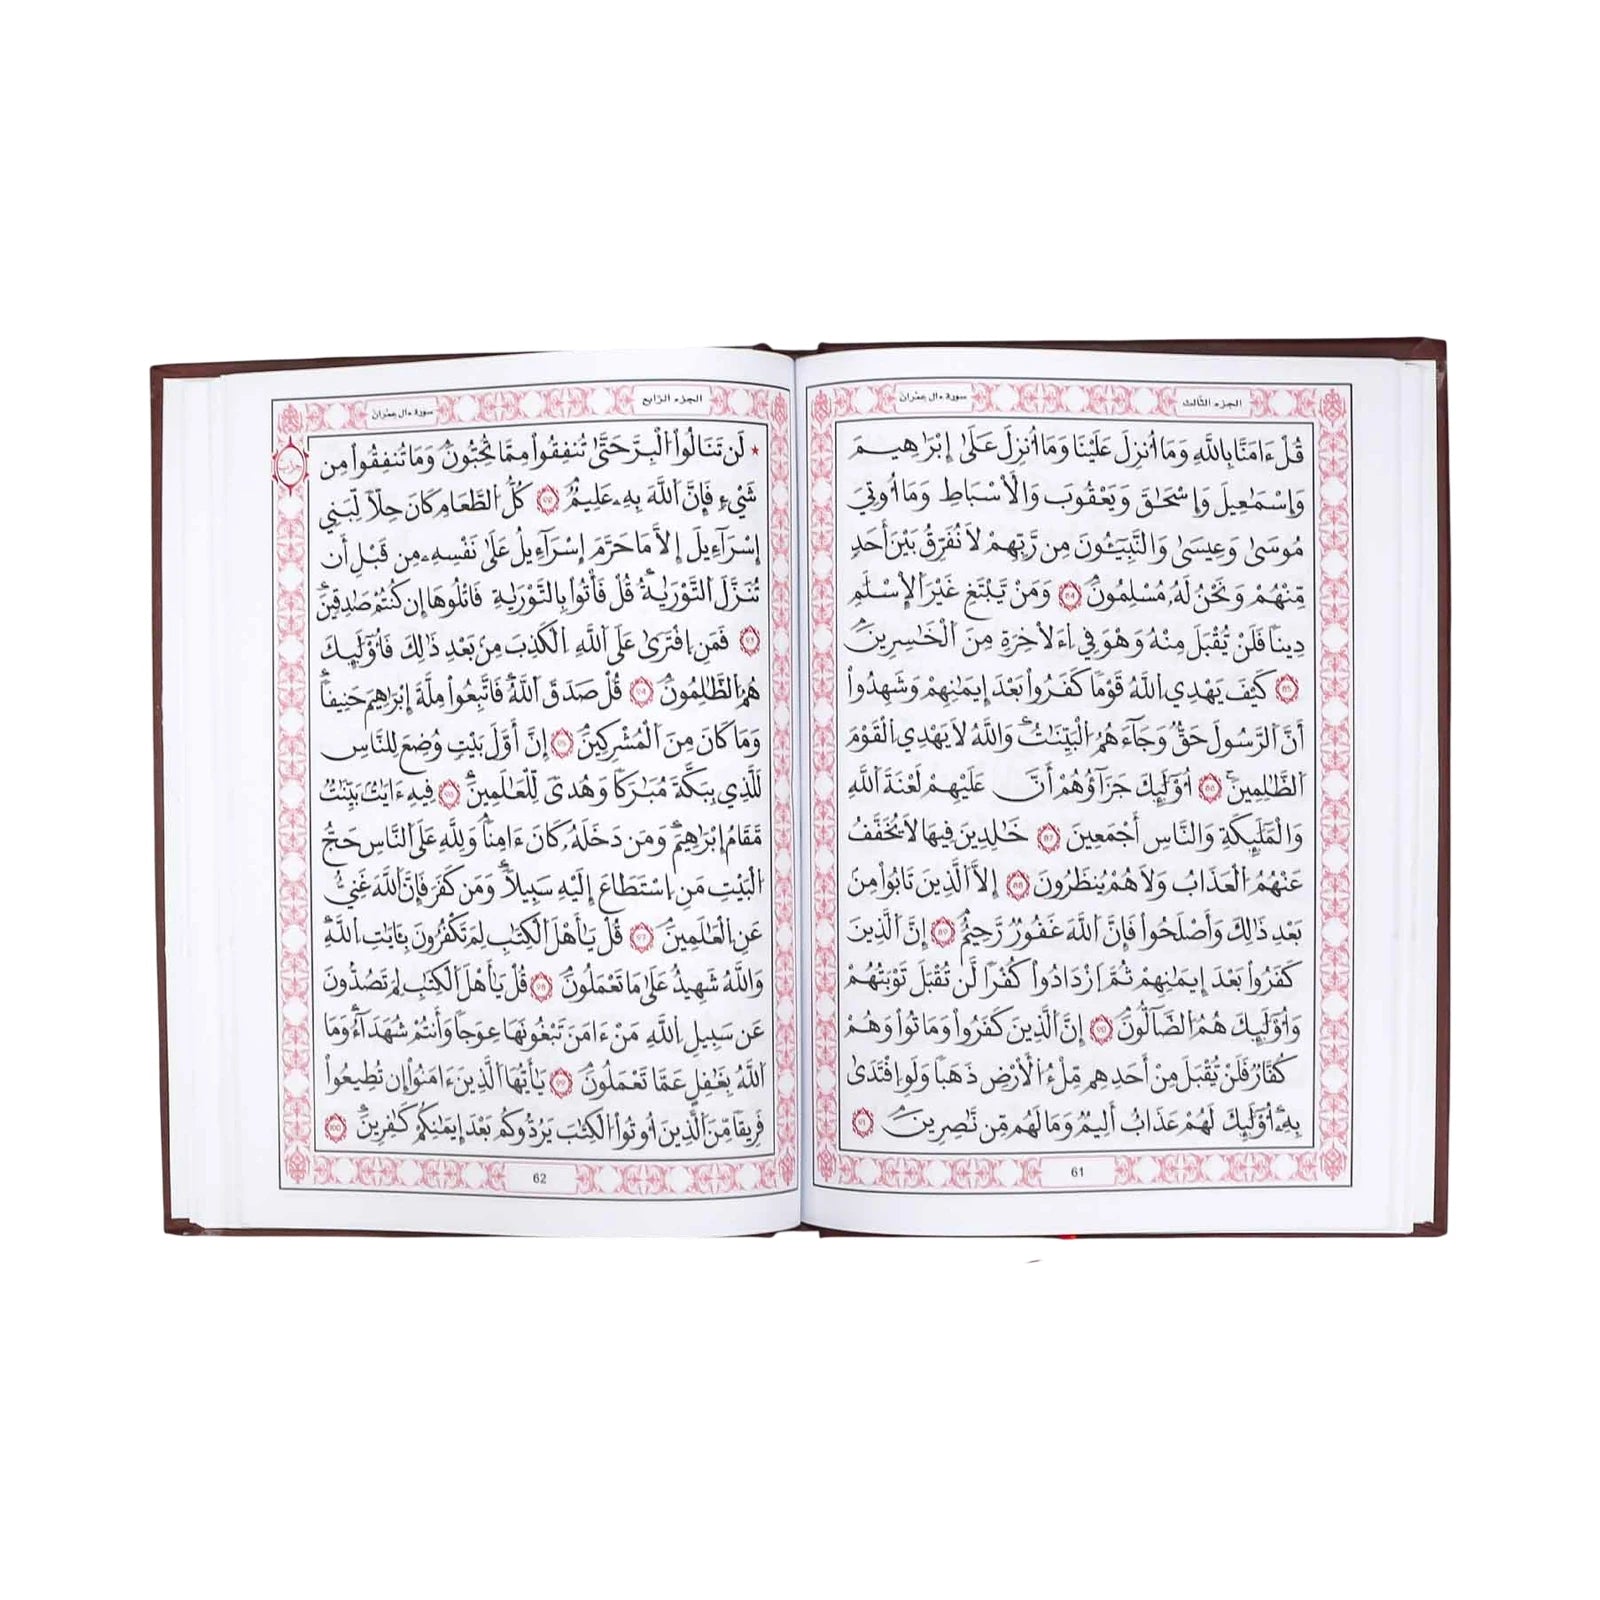 الجزء الثالث
سورة ءال عمران
قُلْ ءَامَنَّا بِاللَّهِ وَمَا أُنزِلَ عَلَيْنَا وَمَا أُنزِلَ عَلَىٰ إِبْرَاهِيمَ
وَإِسْمَٰعِيلَ وَإِسْحَٰقَ وَيَعْقُوبَ وَالْأَسْبَاطِ وَمَا أُوتِيَ
مُوسَىٰ وَعِيسَىٰ وَالنَّبِيـُٔونَ مِن رَّبِّهِمْ لَا نُفَرِّقُ بَيْنَ أَحَدٍ
مِّنْهُمْ وَنَحْنُ لَهُۥ مُسْلِمُونَ 84 وَمَنْ يَّبْتَغِ غَيْرَ الْإِسْلَٰمِ
دِينًا فَلَنْ يُّقْبَلَ مِنْهُ وَهْوَ فِي اِءَلَاخِرَةِ مِنَ الْخَٰسِرِينَ
85 كَيْفَ يَهْدِي اللَّهُ قَوْمًا كَفَرُوا بَعْدَ إِيمَٰنِهِمْ وَشَهِدُوا
أَنَّ الرَّسُولَ حَقٌّ وَجَآءَهُمُ الْبَيِّنَٰتُ وَاللَّهُ لَا يَهْدِي الْقَوْمَ
الظَّٰلِمِينَ 86 أُوْلَٰٓئِكَ جَزَآؤُهُمْ أَنَّ عَلَيْهِمْ لَعْنَةَ اللَّهِ
وَالْمَلَٰٓئِكَةِ وَالنَّاسِ أَجْمَعِينَ 87 خَٰلِدِينَ فِيهَا لَا يُخَفَّفُ
عَنْهُمُ الْعَذَابُ وَلَا هُمْ يُنظَرُونَ 88 إِلَّا الَّذِينَ تَابُوا مِنۢ
بَعْدِ ذَٰلِكَ وَأَصْلَحُوا فَإِنَّ اللَّهَ غَفُورٌ رَّحِيمٌ 89 إِنَّ الَّذِينَ
كَفَرُوا بَعْدَ إِيمَٰنِهِمْ ثُمَّ ازْدَادُوا كُفْرًا لَّن تُقْبَلَ تَوْبَتُهُمْ
وَأُوْلَٰٓئِكَ هُمُ الضَّآلُّونَ 90 إِنَّ الَّذِينَ كَفَرُوا وَمَاتُوا وَهُمْ
كُفَّارٌ فَلَنْ يُّقْبَلَ مِنْ أَحَدِهِم مِّلْءُ الْأَرْضِ ذَهَبًا وَلَوِ افْتَدَىٰ
بِهِۦٓ أُوْلَٰٓئِكَ لَهُمْ عَذَابٌ أَلِيمٌ وَمَا لَهُم مِّن نَّٰصِرِينَ 91
61
الجزء الرابع
سورة ءال عمران
حزب
لَن تَنَالُوا الْبِرَّ حَتَّىٰ تُنفِقُوا مِمَّا تُحِبُّونَ وَمَا تُنفِقُوا مِن
شَيْءٍ فَإِنَّ اللَّهَ بِهِۦ عَلِيمٌ 92 كُلُّ الطَّعَامِ كَانَ حِلًّا لِّبَنِي
إِسْرَآءِيلَ إِلَّا مَا حَرَّمَ إِسْرَآءِيلُ عَلَىٰ نَفْسِهِۦ مِن قَبْلِ أَن
تُنَزَّلَ التَّوْرَىٰةُ قُلْ فَأْتُوا بِالتَّوْرَىٰةِ فَاتْلُوهَا إِن كُنتُمْ صَٰدِقِينَ
93 فَمَنِ افْتَرَىٰ عَلَى اللَّهِ الْكَذِبَ مِنۢ بَعْدِ ذَٰلِكَ فَأُوْلَٰٓئِكَ
هُمُ الظَّٰلِمُونَ 94 قُلْ صَدَقَ اللَّهُ فَاتَّبِعُوا مِلَّةَ إِبْرَاهِيمَ حَنِيفًا
وَمَا كَانَ مِنَ الْمُشْرِكِينَ 95 إِنَّ أَوَّلَ بَيْتٍ وُضِعَ لِلنَّاسِ
لَلَّذِي بِبَكَّةَ مُبَٰرَكًا وَهُدًى لِّلْعَٰلَمِينَ 96 فِيهِ ءَايَٰتٌۢ بَيِّنَٰتٌ
مَّقَامُ إِبْرَاهِيمَ وَمَن دَخَلَهُۥ كَانَ ءَامِنًا وَلِلَّهِ عَلَى النَّاسِ حَجُّ
الْبَيْتِ مَنِ اسْتَطَاعَ إِلَيْهِ سَبِيلًا وَمَن كَفَرَ فَإِنَّ اللَّهَ غَنِيٌّ
عَنِ الْعَٰلَمِينَ 97 قُلْ يَٰأَهْلَ الْكِتَٰبِ لِمَ تَكْفُرُونَ بِـَٔايَٰتِ اللَّهِ
وَاللَّهُ شَهِيدٌ عَلَىٰ مَا تَعْمَلُونَ 98 قُلْ يَٰأَهْلَ الْكِتَٰبِ لِمَ تَصُدُّونَ
عَن سَبِيلِ اللَّهِ مَنْ ءَامَنَ تَبْغُونَهَا عِوَجًا وَأَنتُمْ شُهَدَآءُ وَمَا
اللَّهُ بِغَٰفِلٍ عَمَّا تَعْمَلُونَ 99 يَٰأَيُّهَا الَّذِينَ ءَامَنُوا إِن تُطِيعُوا
فَرِيقًا مِّنَ الَّذِينَ أُوتُوا الْكِتَٰبَ يَرُدُّوكُم بَعْدَ إِيمَٰنِكُمْ كَٰفِرِينَ 100
62